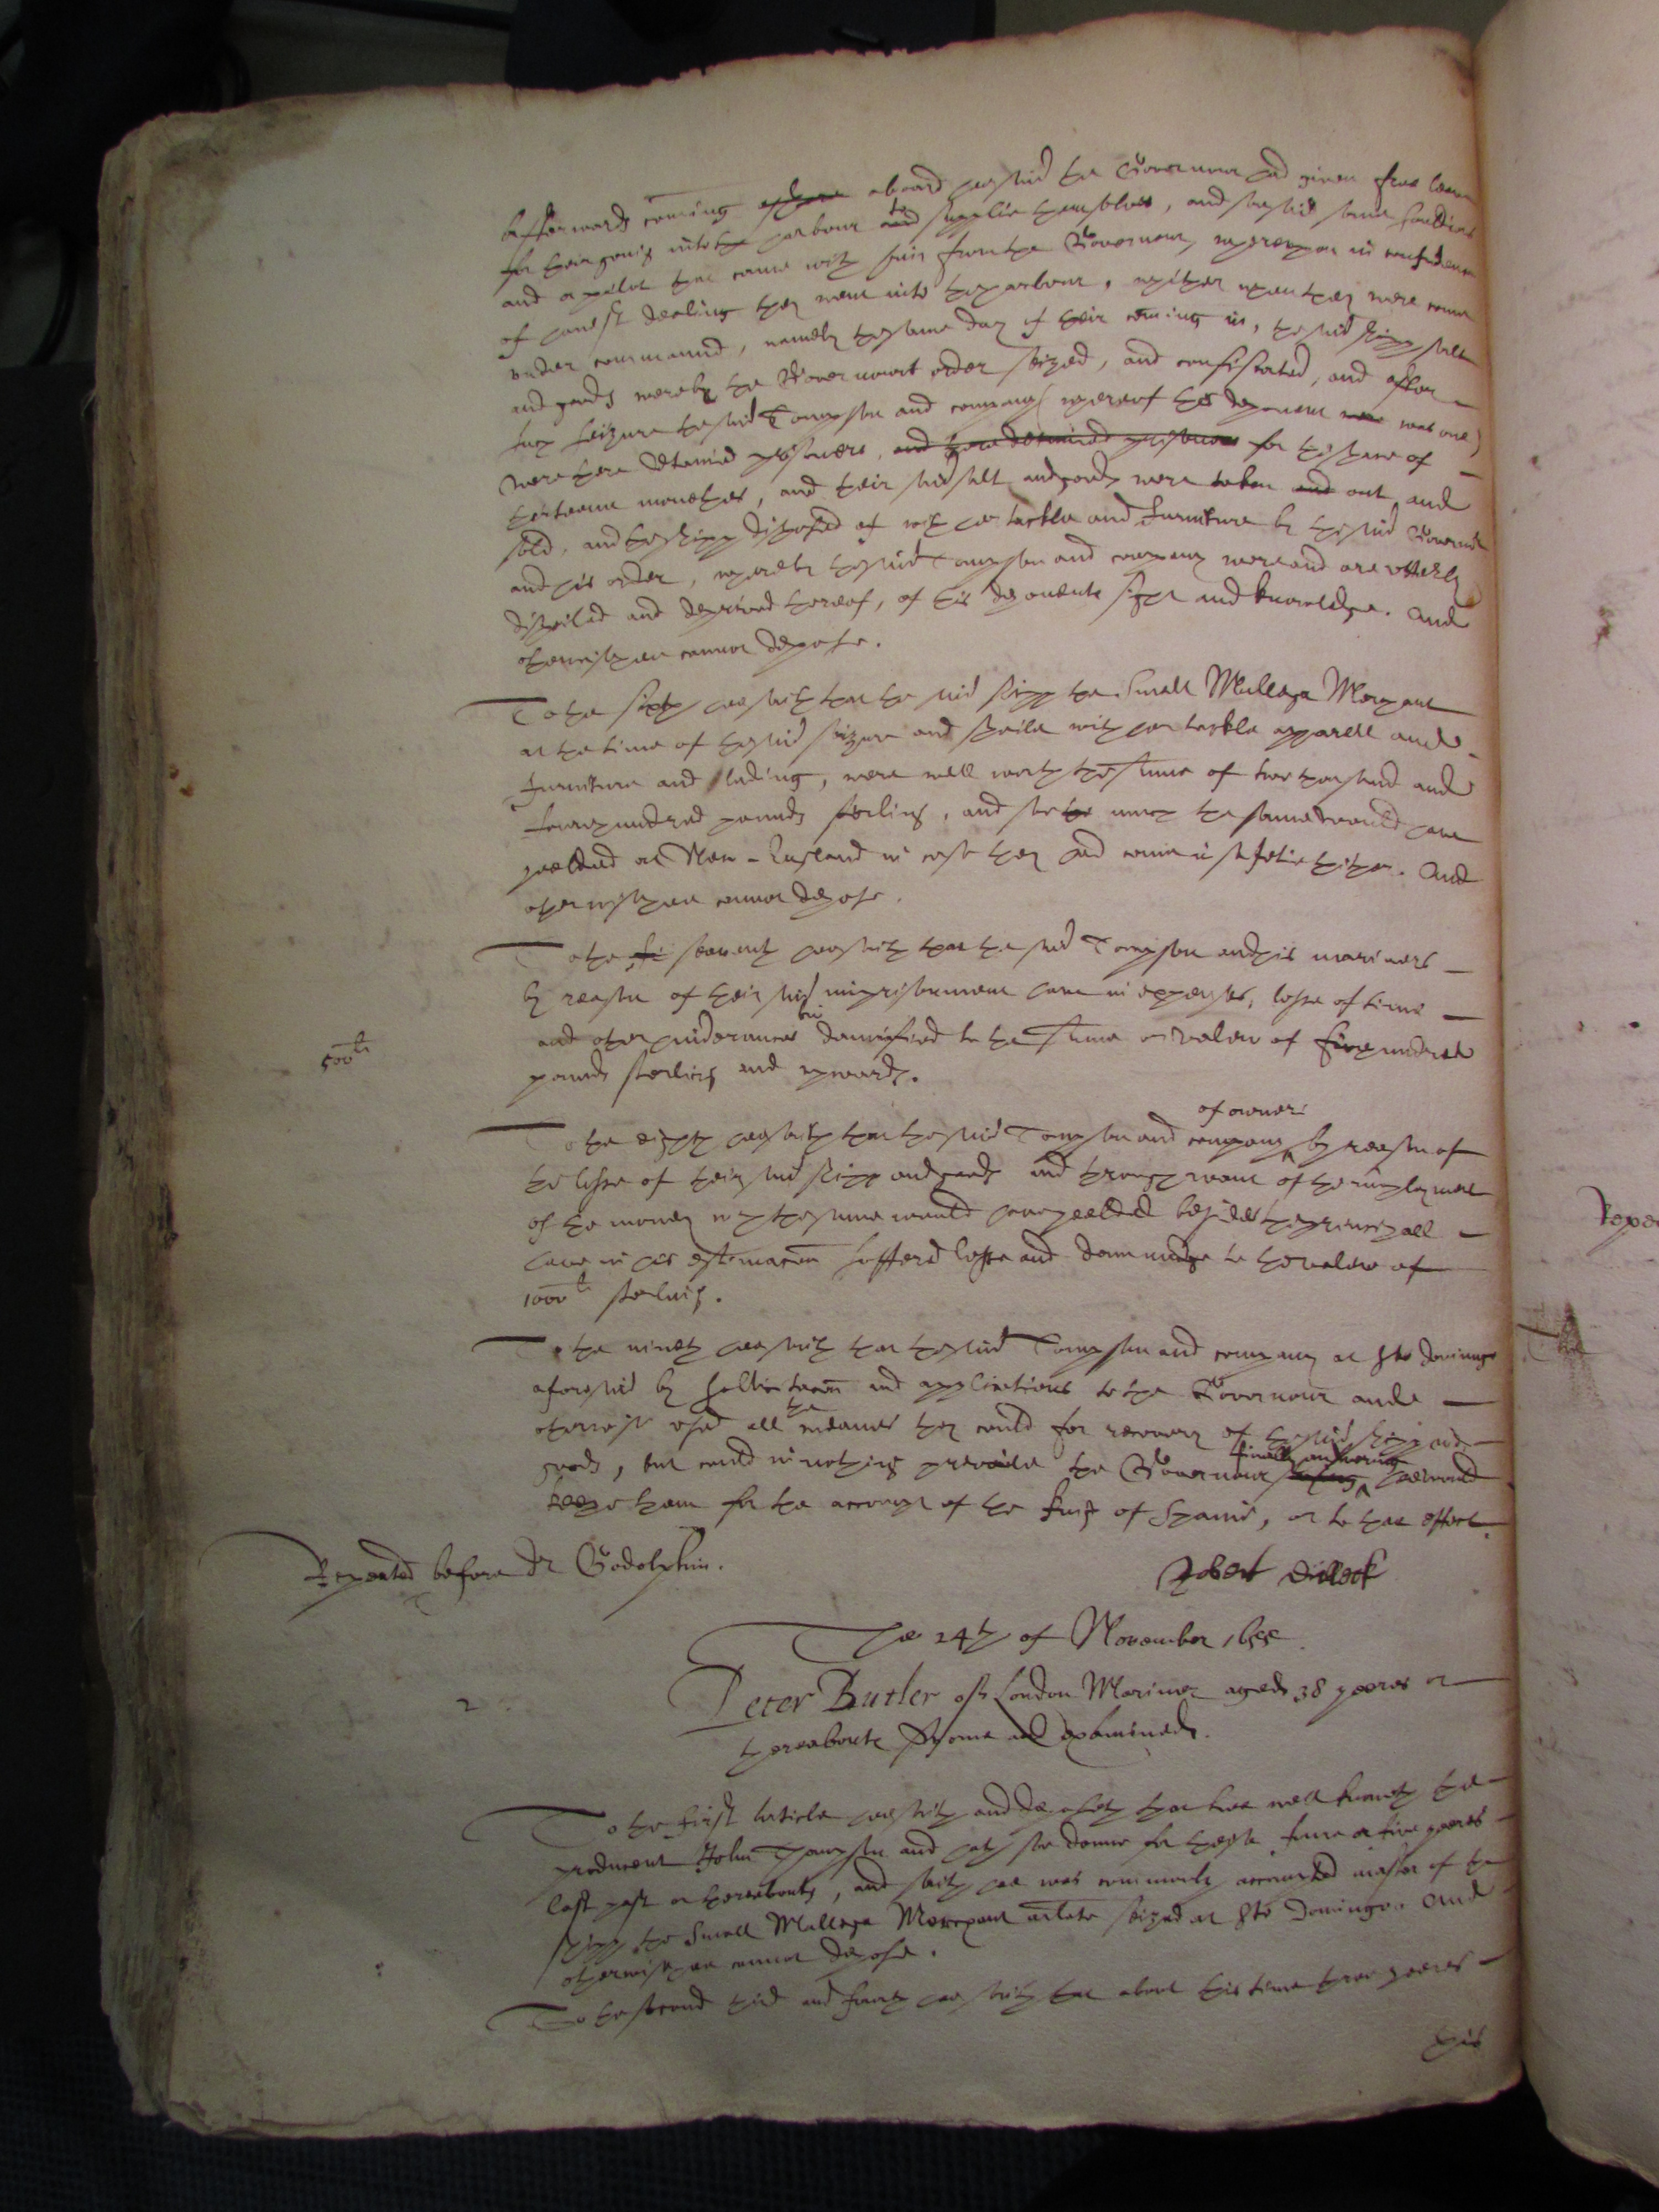 afterwards coming ashore aboard hee said the Governour had given free leave
for their going into the harbour and to supplie themselves, and the said some souldiers
and a pilot that came with him from the Governour, whereupon in confidence
of honest dealing they went into the harbour, whither when they were come
under command, namely the same day of their coming in, the said shipp salt
and goods were by the Governours order seized, and confiscated, and after
such seizure the said Tompson and company (whereof this deponent were was one)
were there detained prisoners, and there detained prisoners for the space of
thirteene monethes, and their said salt and goods were taken and out and
sold, and the shipp disposed of with her tackle and furniture by the said Governour
and his order, whereby the said Tompson and company were and are utterly
dispoiled and deprived thereof, of this deponents sight and knowledge. And
otherwise hee cannot depose.
To the sixth hee saith that the said shipp the Small Mallaga Merchant
at the time of the said seizure and spoile with her tackle apparell and
furniture and lading, were well worth the summe of two thousand and
foure hundred pounds sterling, and soe much the same would have
yeelded at New-England in case they had come in safetie thither. And
otherwise hee cannot depose.
To the seaventh hee saith that the said Tompson and his mariners
by reason of their said imprisonment have in expenses, losse of time
and other hinderances bin damnified to the summe or valew of five hundred
500li
pounds sterling and upwards.
of owners
To the eighth hee saith that the said Tompson and company by reason of
the losse of their said shipp and goods and through want of the imployment
of the money which the same would have yeelded besides the principall
have in his estimacon suffered losse and dammage to the valew of
1000li sterling.
To the nineth hee saith that the said Tompson and company at Sto Domingo
aforesaid by sollicitacon and applications to the Governour and
otherwise used all the meanes they could for recovery of the said shipp and
goods, but could in nothing prevaile the Governour finally answering hee would
keepe them for the accompt of the King of Spaine, or to that effect.
Repeated before dr Godolphin.
Robert Dillock
The 24th of November 1655.
2
Peter Butler of London Mariner aged 38 yeeres or
thereabouts sworne and examined.
To the first article hee saith and deposeth that hee well knoweth the
producent John Thompson and hath soe donne for theese foure or five yeeres
last past or thereabouts, and saith hee was commonly accounted master of the
shipp the Small Mallaga Merchant arlate seized at Sto Domingo. And
otherwise hee cannot depose.
To the second third and fourth hee saith that about this time three yeeres
this